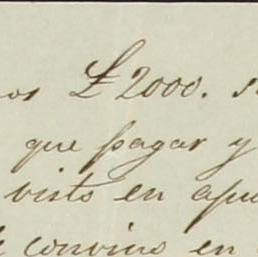 £2000.
que pagar y
visto en
convino en